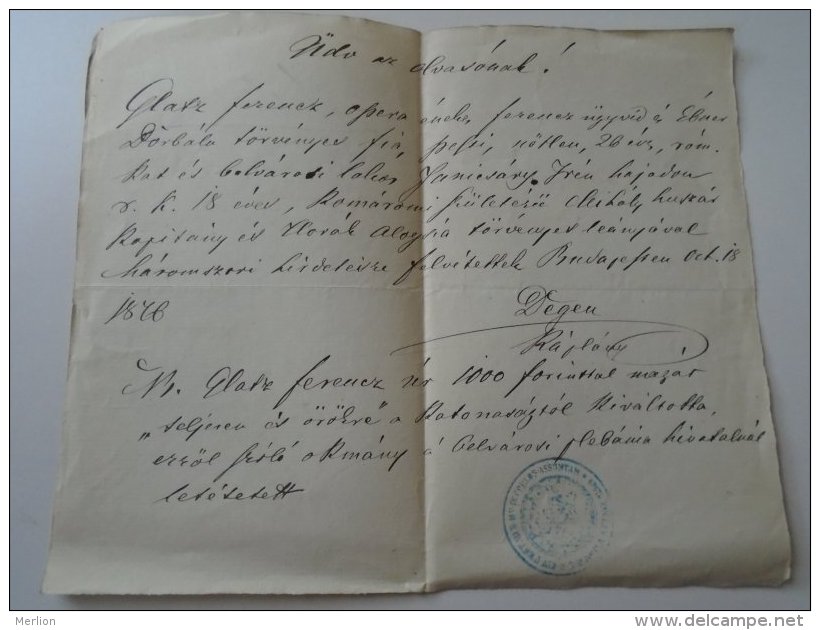 Üdv az olvasónak!
Glatz Ferencz, opera énekes Ferencz ügyvéd és Ébner
Borbála törvényes fia, pesti, nőtlen, 26 éves, róm.
kat és belvárosi lakos, Janicsáry Irén hajadon
r. k. 18 éves, komáromi születésű Mihály huszár
kapitány és Horák Aloyzia törvényes leányával
háromszori hirdetésre felvétettek Budapesten Oct. 18
1876
Degen
Káplán
N. Glatz Ferencz úr 1000 forinttal magát
„teljesen és örökre" a katonaságtól kiváltotta,
ezről szóló okmány a belvárosi plebánia hivatalnál
letétetett
Merlion
www.delcampe.net